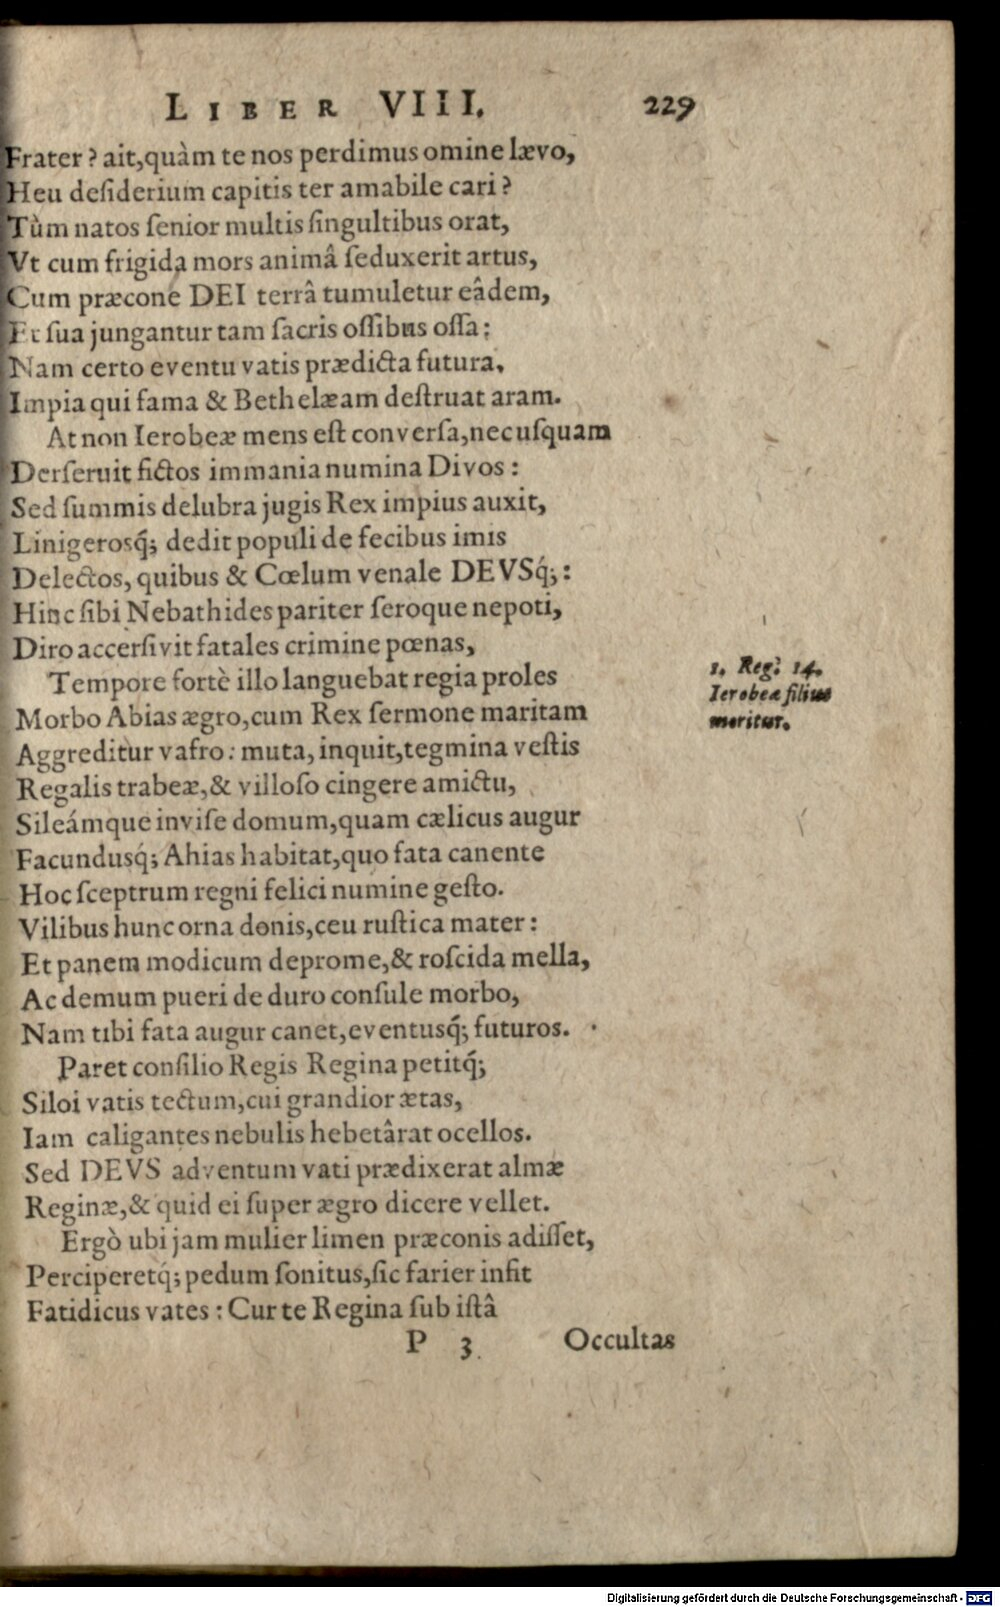 LIBER VIII. 229
Frater? ait,quàm te nos perdimus omine lævo,
Heu deſiderium capitis ter amabile cari?
Tùm natos ſenior multis ſingultibus orat,
Vt cum frigida mors animâ ſeduxerit artus,
Cum præcone DEI terrâ tumuletur eâdem,
Et ſua jungantur tam ſacris oſſibus oſſa:
Nam certo eventu vatis prædicta futura,
Impia qui fama & Bethelæam deſtruat aram.
At non Ierobeæ mens eſt converſa,necuſquam
Derſeruit fictos immania numina Divos:
Sed ſummis delubra jugis Rex impius auxit,
Linigerosq́; dedit populi de fecibus imis
Delectos, quibus & Cœlum venale DEVSq́;:
Hinc ſibi Nebathides pariter ſeroque nepoti,
Diro accerſivit fatales crimine pœnas,
Tempore fortè illo languebat regia proles
Morbo Abias ægro,cum Rex ſermone maritam
Aggreditur vafro: muta, inquit,tegmina veſtis
Regalis trabeæ,& villoſo cingere amictu,
Sileámque inviſe domum,quam cælicus augur
Facundusq́; Ahias habitat,quo fata canente
Hoc ſceptrum regni felici numine geſto.
Vilibus hunc orna donis,ceu ruſtica mater:
Et panem modicum deprome,& roſcida mella,
Ac demum pueri de duro conſule morbo,
Nam tibi fata augur canet,eventusq́; futuros.
Paret conſilio Regis Regina petitq́;
Siloi vatis tectum,cui grandior ætas,
Iam caligantes nebulis hebetârat ocellos.
Sed DEVS adventum vati prædixerat almæ
Reginæ,& quid ei ſuper ægro dicere vellet.
Ergò ubi jam mulier limen præconis adiſſet,
Perciperetq́; pedum ſonitus,ſic farier infit
Fatidicus vates: Cur te Regina ſub iſtâ
P 3 Occultas
1. Reg. 14.
Ierobeæ filius
moritur.
Digitalisierung gefördert durch die Deutsche Forschungsgemeinschaft - DFG